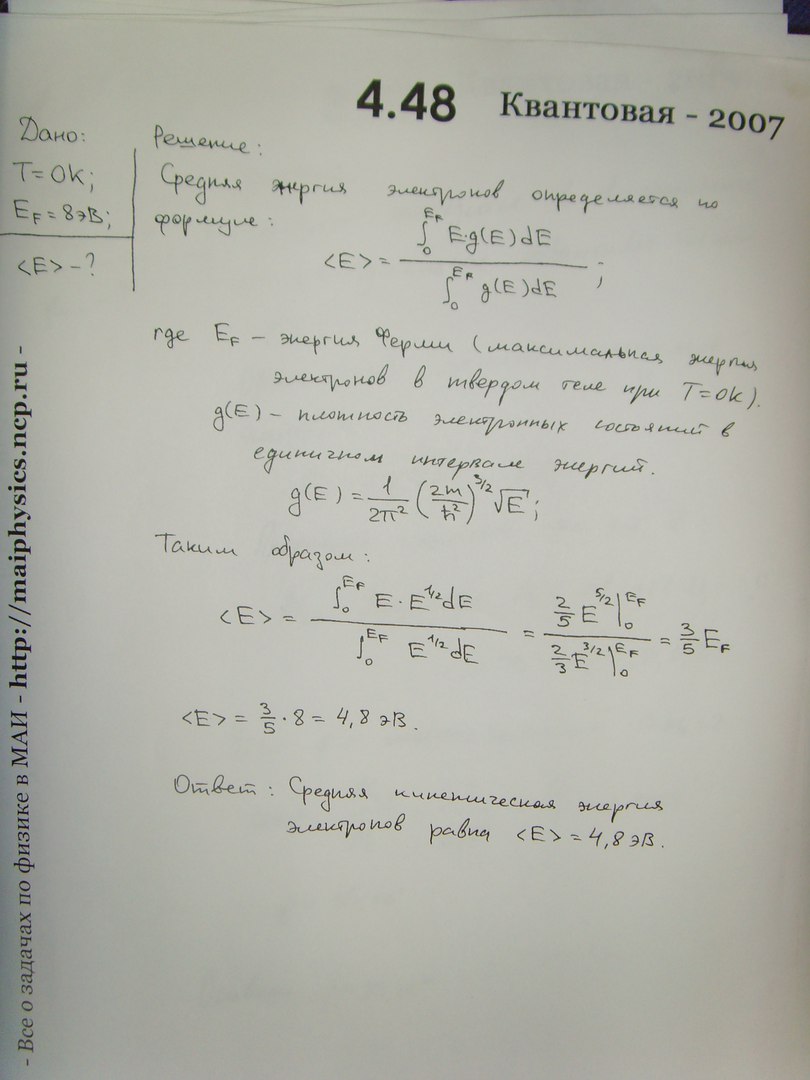 4.48 Квантовая - 2007
Дано:
T = 0K;
E_F = 8эВ;
<E> - ?
Решение:
Средняя энергия электронов определяется по
формуле:
<E> = ∫₀^{E_F} E·g(E)dE / ∫₀^{E_F} g(E)dE ;
где E_F – энергия Ферми (максимальная энергия
электронов в твердом теле при T=0K).
g(E) – плотность электронных состояний в
единичном интервале энергий.
g(E) = 1/2π² (2m/ħ²)^{3/2} √E ;
Таким образом:
<E> = ∫₀^{E_F} E·E^{1/2}dE / ∫₀^{E_F} E^{1/2}dE = 2/5 E^{5/2}|₀^{E_F} / 2/3 E^{3/2}|₀^{E_F} = 3/5 E_F
<E> = 3/5 · 8 = 4,8 эВ.
Ответ: Средняя кинетическая энергия
электронов равна <E> = 4,8 эВ.
- Все о задачах по физике в МАИ - http://maiphysics.ncp.ru -